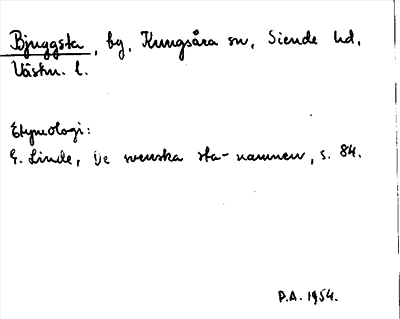 Bjuggsta, by, Kungsåra sn, Siende hd,
Västm. l.
Etymologi:
G. Linde, De svenska sta-namnen, s. 84.
P.A. 1954.